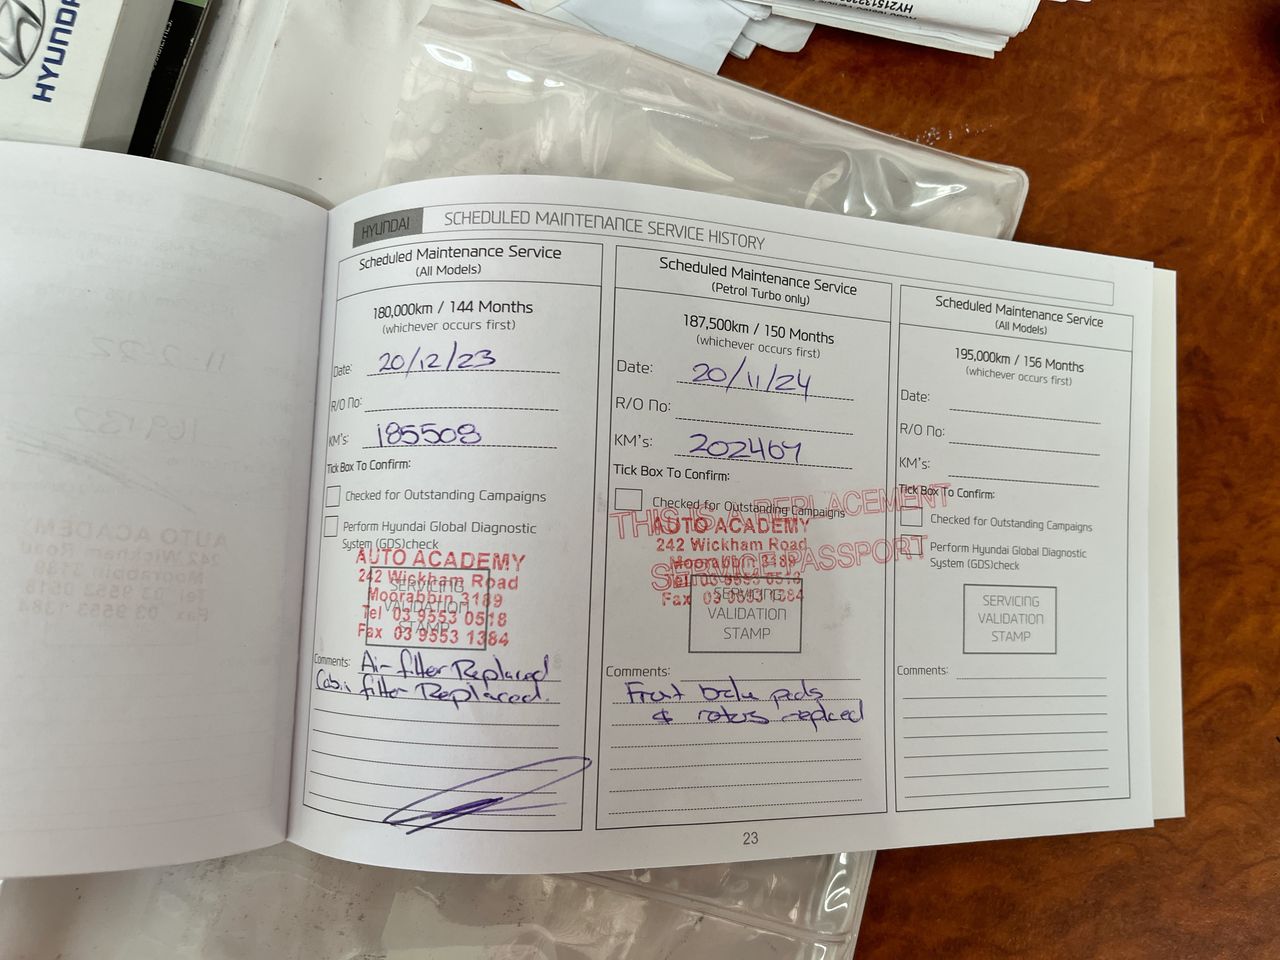 HYUNDAI
HYUNDAI
SCHEDULED MAINTENANCE SERVICE HISTORY
Scheduled Maintenance Service
(All Models)
180,000km / 144 Months
(whichever occurs first)
Date: 20/12/23
R/O No:
KM's: 185508
Tick Box To Confirm:
Checked for Outstanding Campaigns
Perform Hyundai Global Diagnostic
System (GDS)check
AUTO ACADEMY
242 Wickham Road
Moorabbin 3189
Tel 03 9553 0518
Fax 03 9553 1384
SERVICING
VALIDATION
STAMP
Comments: Air filter Replaced
Cabin filter Replaced.
Scheduled Maintenance Service
(Petrol Turbo only)
187,500km / 150 Months
(whichever occurs first)
Date: 20/11/24
R/O No:
KM's: 202469
Tick Box To Confirm:
Checked for Outstanding Campaigns
THIS IS A REPLACEMENT
SERVICE PASSPORT
AUTO ACADEMY
242 Wickham Road
Moorabbin 3189
Tel 03 9553 0518
Fax 03 9553 1384
SERVICING
VALIDATION
STAMP
Comments:
Front brake pads
& rotors replaced
Scheduled Maintenance Service
(All Models)
195,000km / 156 Months
(whichever occurs first)
Date:
R/O No:
KM's:
Tick Box To Confirm:
Checked for Outstanding Campaigns
Perform Hyundai Global Diagnostic
System (GDS)check
SERVICING
VALIDATION
STAMP
Comments:
23